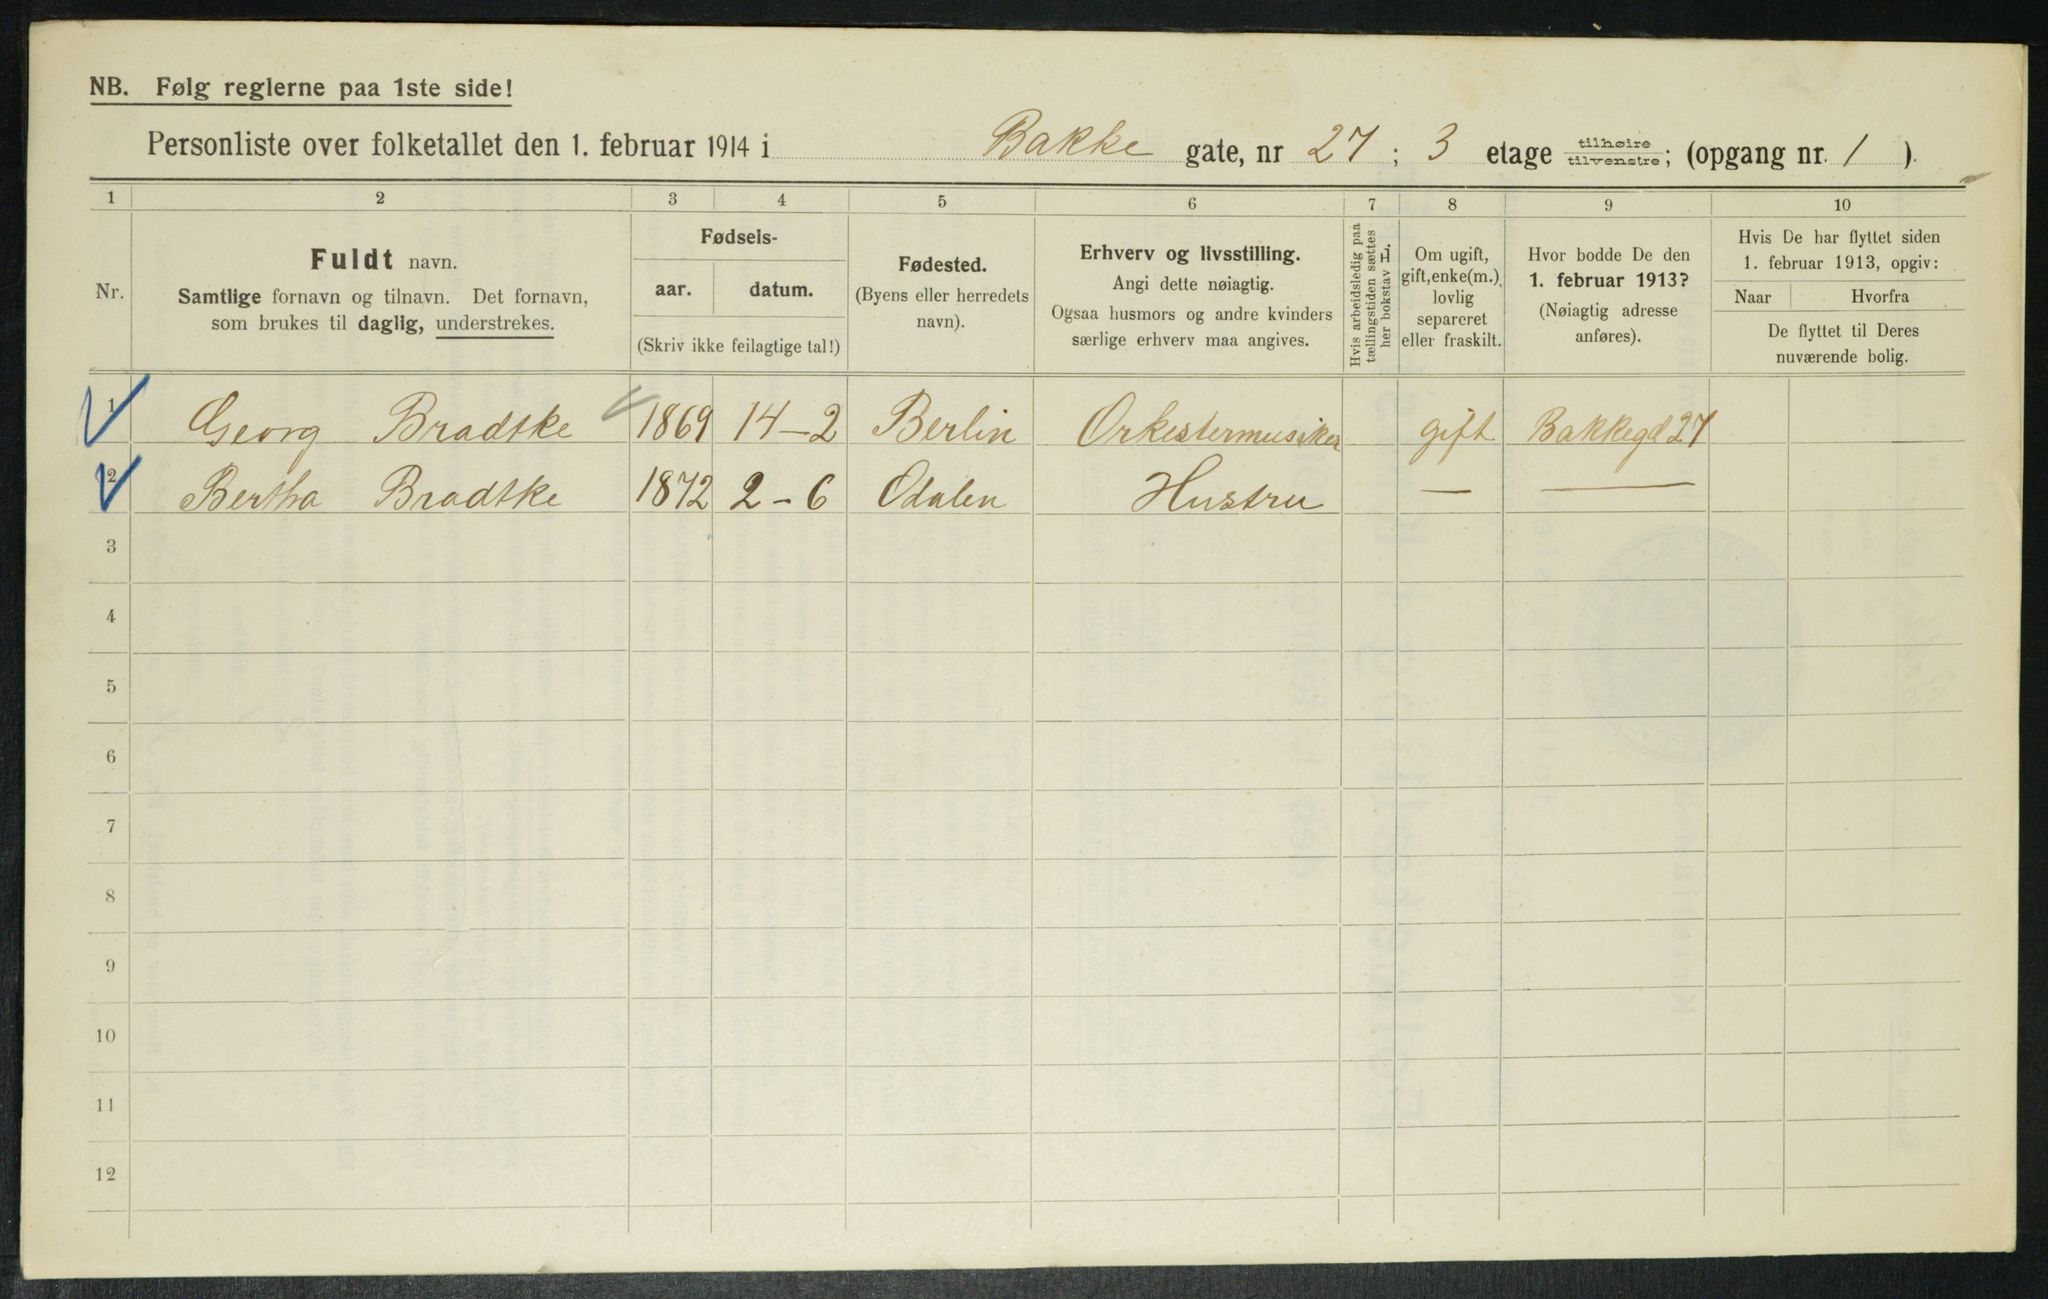 NB. Følg reglerne paa 1ste side!
Personliste over folketallet den 1. februar 1914 i Bakke gate, nr 27; 3 etage tilhøire/tilvenstre; (opgang nr. 1 ).
1 2 3 4 5 6 7 8 9 10
Nr.
Fuldt navn.
Samtlige fornavn og tilnavn. Det fornavn,
som brukes til daglig, understrekes.
Fødsels-
aar. datum.
(Skriv ikke feilagtige tal!)
Fødested.
(Byens eller herredets
navn).
Erhverv og livsstilling.
Angi dette nøiagtig.
Ogsaa husmors og andre kvinders
særlige erhverv maa angives.
Hvis arbeidsledig paa
tællingstiden sættes
her bokstav L.
Om ugift,
gift, enke(m.),
lovlig
separeret
eller fraskilt.
Hvor bodde De den
1. februar 1913?
(Nøiagtig adresse
anføres).
Hvis De har flyttet siden
1. februar 1913, opgiv:
Naar Hvorfra
De flyttet til Deres
nuværende bolig.
1 Georg Bradtke 1869 14-2 Berlin Orkestermusiker gift Bakkegd 27
2 Bertha Bradtke 1872 2-6 Odalen Hustru — —
3
4
5
6
7
8
9
10
11
12